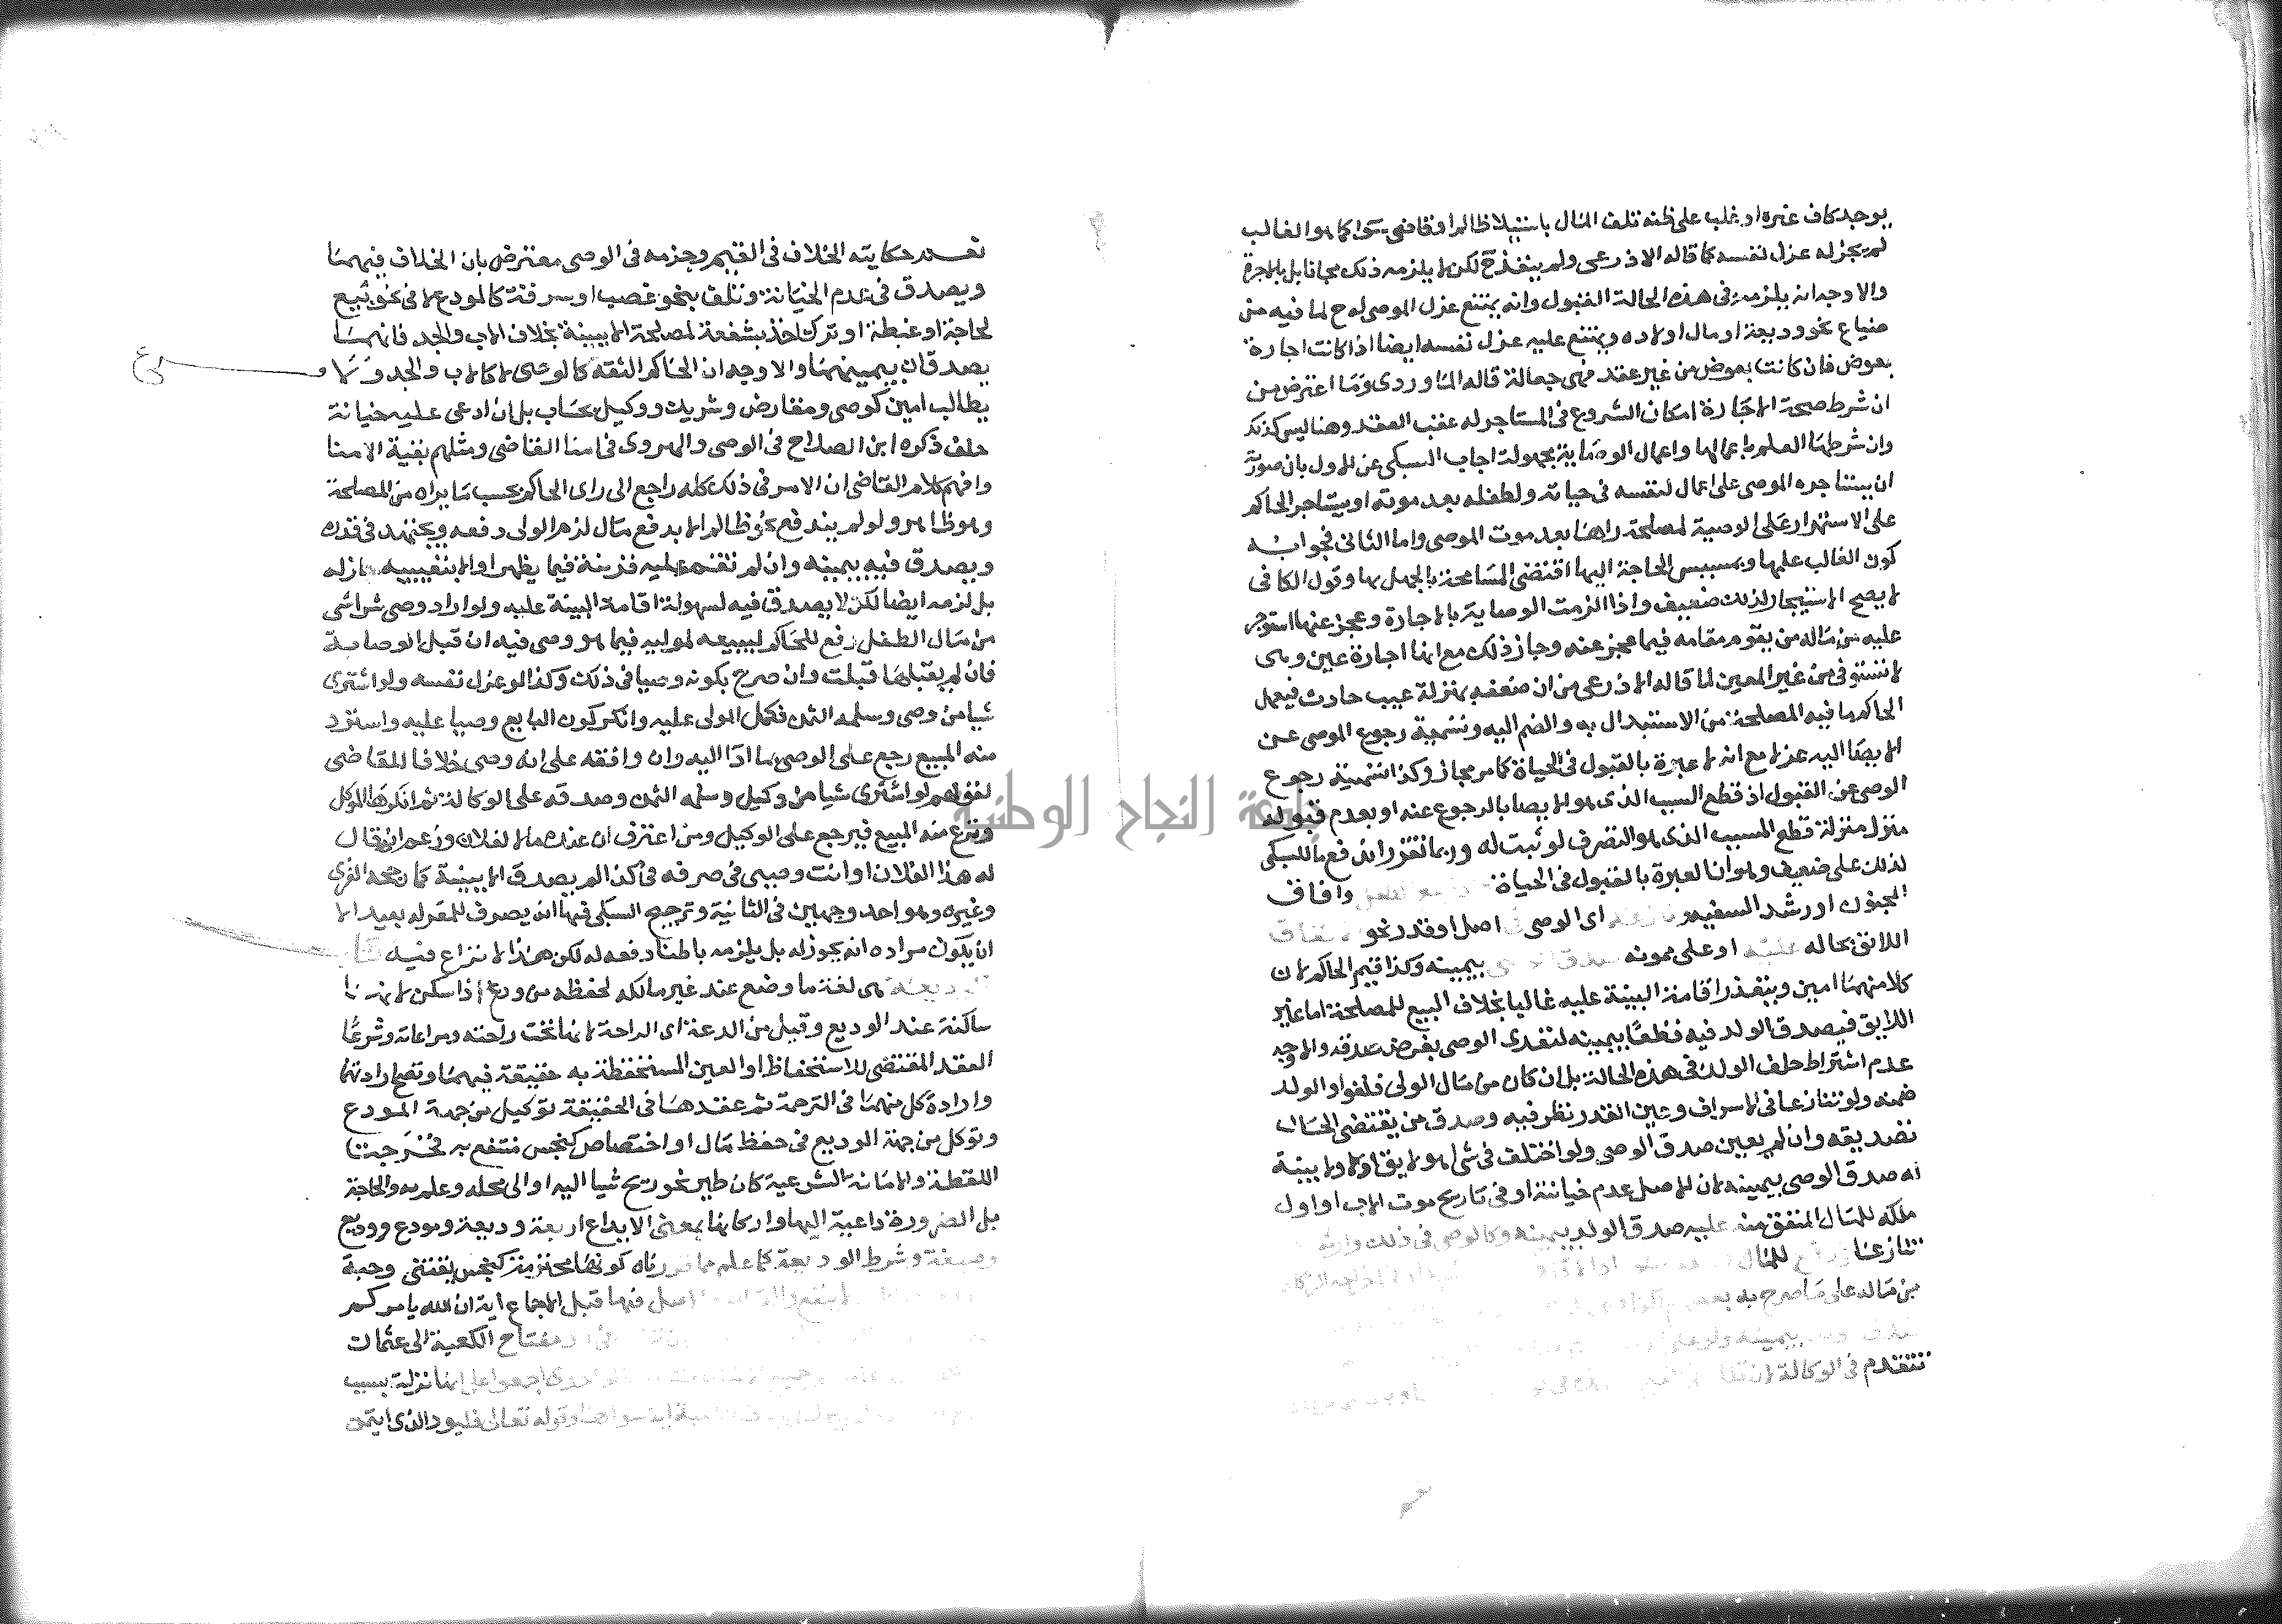 يوجد كاف غيره او غلب على ظنه تلف المال باستيلا ظالم او قاضي سوا كما هو الغالب
لم يجز له عزل نفسه كما قاله الاذرعى ولم ينفذ ح لكن لا يلزمه ذلك مجانا بل بالاجرة
والاوجه انه يلزمه فى هذه الحالة القبول وانه يمتنع عزل الموصى له ح لما فيه من
ضياع نحو وديعة او مال اولاده ويمتنع عليه عزل نفسه ايضا اذا كانت اجارة
بعوض فان كانت بعوض من غير عقد فهى جعالة قاله الماوردى وما اعترض من
ان شرط صحة الاجارة امكان الشروع فى المستاجر له عقب العقد وهنا ليس كذلك
وان شرطها العلم باعمالها واعمال الوصاية مجهولة اجاب السبكى عن الاول بان صورته
ان يستاجره الموصى على اعمال لنفسه فى حياته ولطفله بعد موته او يستاجر الحاكم
على الاستمرار على الوصية لمصلحة راها بعد موت الموصى واما الثانى فجوابه
كون الغالب علمها وبمسيس الحاجة اليها اقتضى المسامحة بالجهل بها وقول الكافى
لا يصح الاستيجار لذلك ضعيف واذا لزمت الوصاية بالاجارة وعجز عنها استوجر
عليه من ماله من يقوم مقامه فيما عجز عنه وجاز ذلك مع انها اجارة عين وهى
لا تستوفى من غير المعين لما قاله الاذرعى من ان ضعفه بمنزلة عيب حادث فيعمل
الحاكم ما فيه المصلحة من الاستبدال به والضم اليه وتسمية رجوع الموصى عن
الايصا اليه عزلا مع انه لا عبرة بالقبول فى الحياة كما مر مجاز وكذا تسمية رجوع
الوصى عن القبول اذ قطع السبب الذى هو الايصا بالرجوع عنه او بعدم قبوله
منزل منزلة قطع المسبب الذى هو التصرف لو ثبت له وربما تقرر اندفع ما للسبكى
لذلك على ضعيف وهو ان العبرة بالقبول فى الحياة وافاق
المجنون او رشد السفيه اى الوصى فى اصل او قدر نحو
اللائق بحاله عليه او على ممونه صدق بيمينه وكذا قيم الحاكم لان
كلا منهما امين ويتعذر اقامة البينة عليه غالبا بخلاف البيع للمصلحة اما غير
اللايق فيصدق الولد فيه قطعا بيمينه لتعدى الوصى بفرض صدقه والاوجه
عدم اشتراط حلف الولد فى هذه الحالة بل ان كان من مال الولى فلغو او الولد
ضمنه ولو تنازعا فى الاسراف وعين القدر نظر فيه وصدق من يقتضى الحال
تصديقه وان لم يعين صدق الوصى ولو اختلف فى شى اهو لايق او لا ولا بينة
له صدق الوصى بيمينه لان الاصل عدم خيانته او فى تاريخ موت الاب او اول
ملكه للمال المنفق منه عليه صدق الولد بيمينه وكالوصى فى ذلك وارثه
تنازعا فى دفع للمال
من ماله على ما صرح به
بيمينه ولو
تتقدم فى الوكالة
بعد حكايته الخلاف فى القيم وجزمه فى الوصى معترض بان الخلاف فيهما
ويصدق فى عدم الخيانة وتلف بنحو غصب او سرقة كالمودع لا فى نحو بيع
لحاجة او غبطة او ترك اخذ بشفعة لمصلحة الا ببينة بخلاف الاب والجد فانهما
يصدقان بيمينهما والاوجه ان الحاكم الثقة كالوصى لا كالاب والجد ولا
يطالب امين كوصى ومقارض وشريك ووكيل بحساب بل ان ادعى عليه خيانة
حلف ذكره ابن الصلاح فى الوصى والهروى فى امنا القاضى ومثلهم بقية الامنا
وافهم كلام القاضى ان الامر فى ذلك كله راجع الى راى الحاكم بحسب ما يراه من المصلحة
وهو ظاهر ولو لم يندفع نحو ظالم الا بدفع مال لزم الولى دفعه ويجتهد فى قدره
ويصدق فيه بيمينه وان لم تقم عليه قرينة فيما يظهر او الا بتعييبه جاز له
بل لزمه ايضا لكن لا يصدق فيه لسهولة اقامة البينة عليه ولو اراد وصى شرا شى
من مال الطفل رفع للحاكم ليبيعه لموليه فيما هو وصى فيه ان قبل الوصاية
فان لم يقبلها قبلت وان صرح بكونه وصيا فى ذلك وكذا لو عزل نفسه ولو اشترى
شيا من وصى وسلمه الثمن فكمل المولى عليه وانكر كون البايع وصيا عليه واسترد
منه المبيع رجع على الوصى بما ادا اليه وان وافقه على انه وصى خلافا للقاضى
لقولهم لو اشترى شيا من وكيل وسلمه الثمن وصدقه على الوكالة ثم انكرها الموكل
ونزع منه المبيع فيرجع على الوكيل ومن اعترف ان عنده مالا لفلان وزعم انه قال
له هذا لفلان او انت وصيى فى صرفه فى كذا لم يصدق الا ببينة كما رجحه الغزى
وغيره وهو احد وجهين فى الثانية وترجيح السبكى فيها ان يصرف للمقر له بعيد الا
ان يكون مراده انه يجوز له بل يلزمه باطنا دفعه له لكن هذا لا نزاع فيه كتاب
الوديعة هى لغة ما وضع عند غير مالكه لحفظه من ودع اذا سكن لانها
ساكنة عند الوديع وقيل من الدعة اى الراحة لانها تحت راحته ومراعاته وشرعا
العقد المقتضى للاستحفاظ او العين المستحفظة به حقيقة فيهما وتصح ارادتها
وارادة كل منهما فى الترجمة ثم عقدها فى الحقيقة توكيل من جهة المودع
وتوكل من جهة الوديع فى حفظ مال او اختصاص كنجس منتفع به فخرجتا
اللقطة والامانة الشرعية كان طير نحو ريح شيا اليه او الى محله وعلم به والحاجة
بل الضرورة داعية اليها واركانها بمعنى الايداع اربعة وديعة ومودع ووديع
وصيغة وشرط الوديعة كما علم مما قررناه كونها محترمة كنجس يقتنى وحبة
لا ينفع والاصل فيها قبل الاجماع اية ان الله يامركم
مفتاح الكعبة الى عثمان
الواحدى اجمعوا على انها نزلت بسبب
وقوله تعالى فليود الذى ايتمن